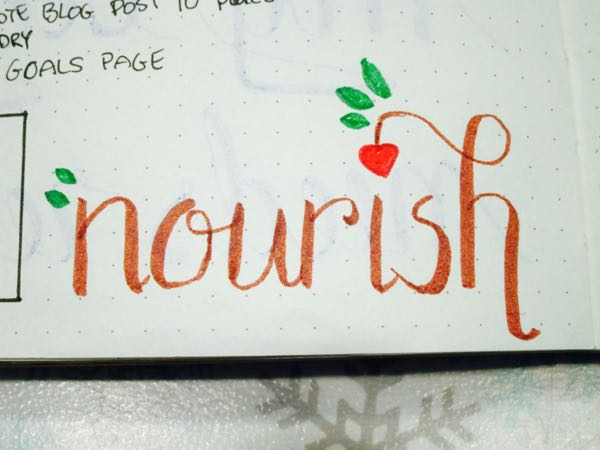 BLOG POST TO
GOALS PAGE
nourish